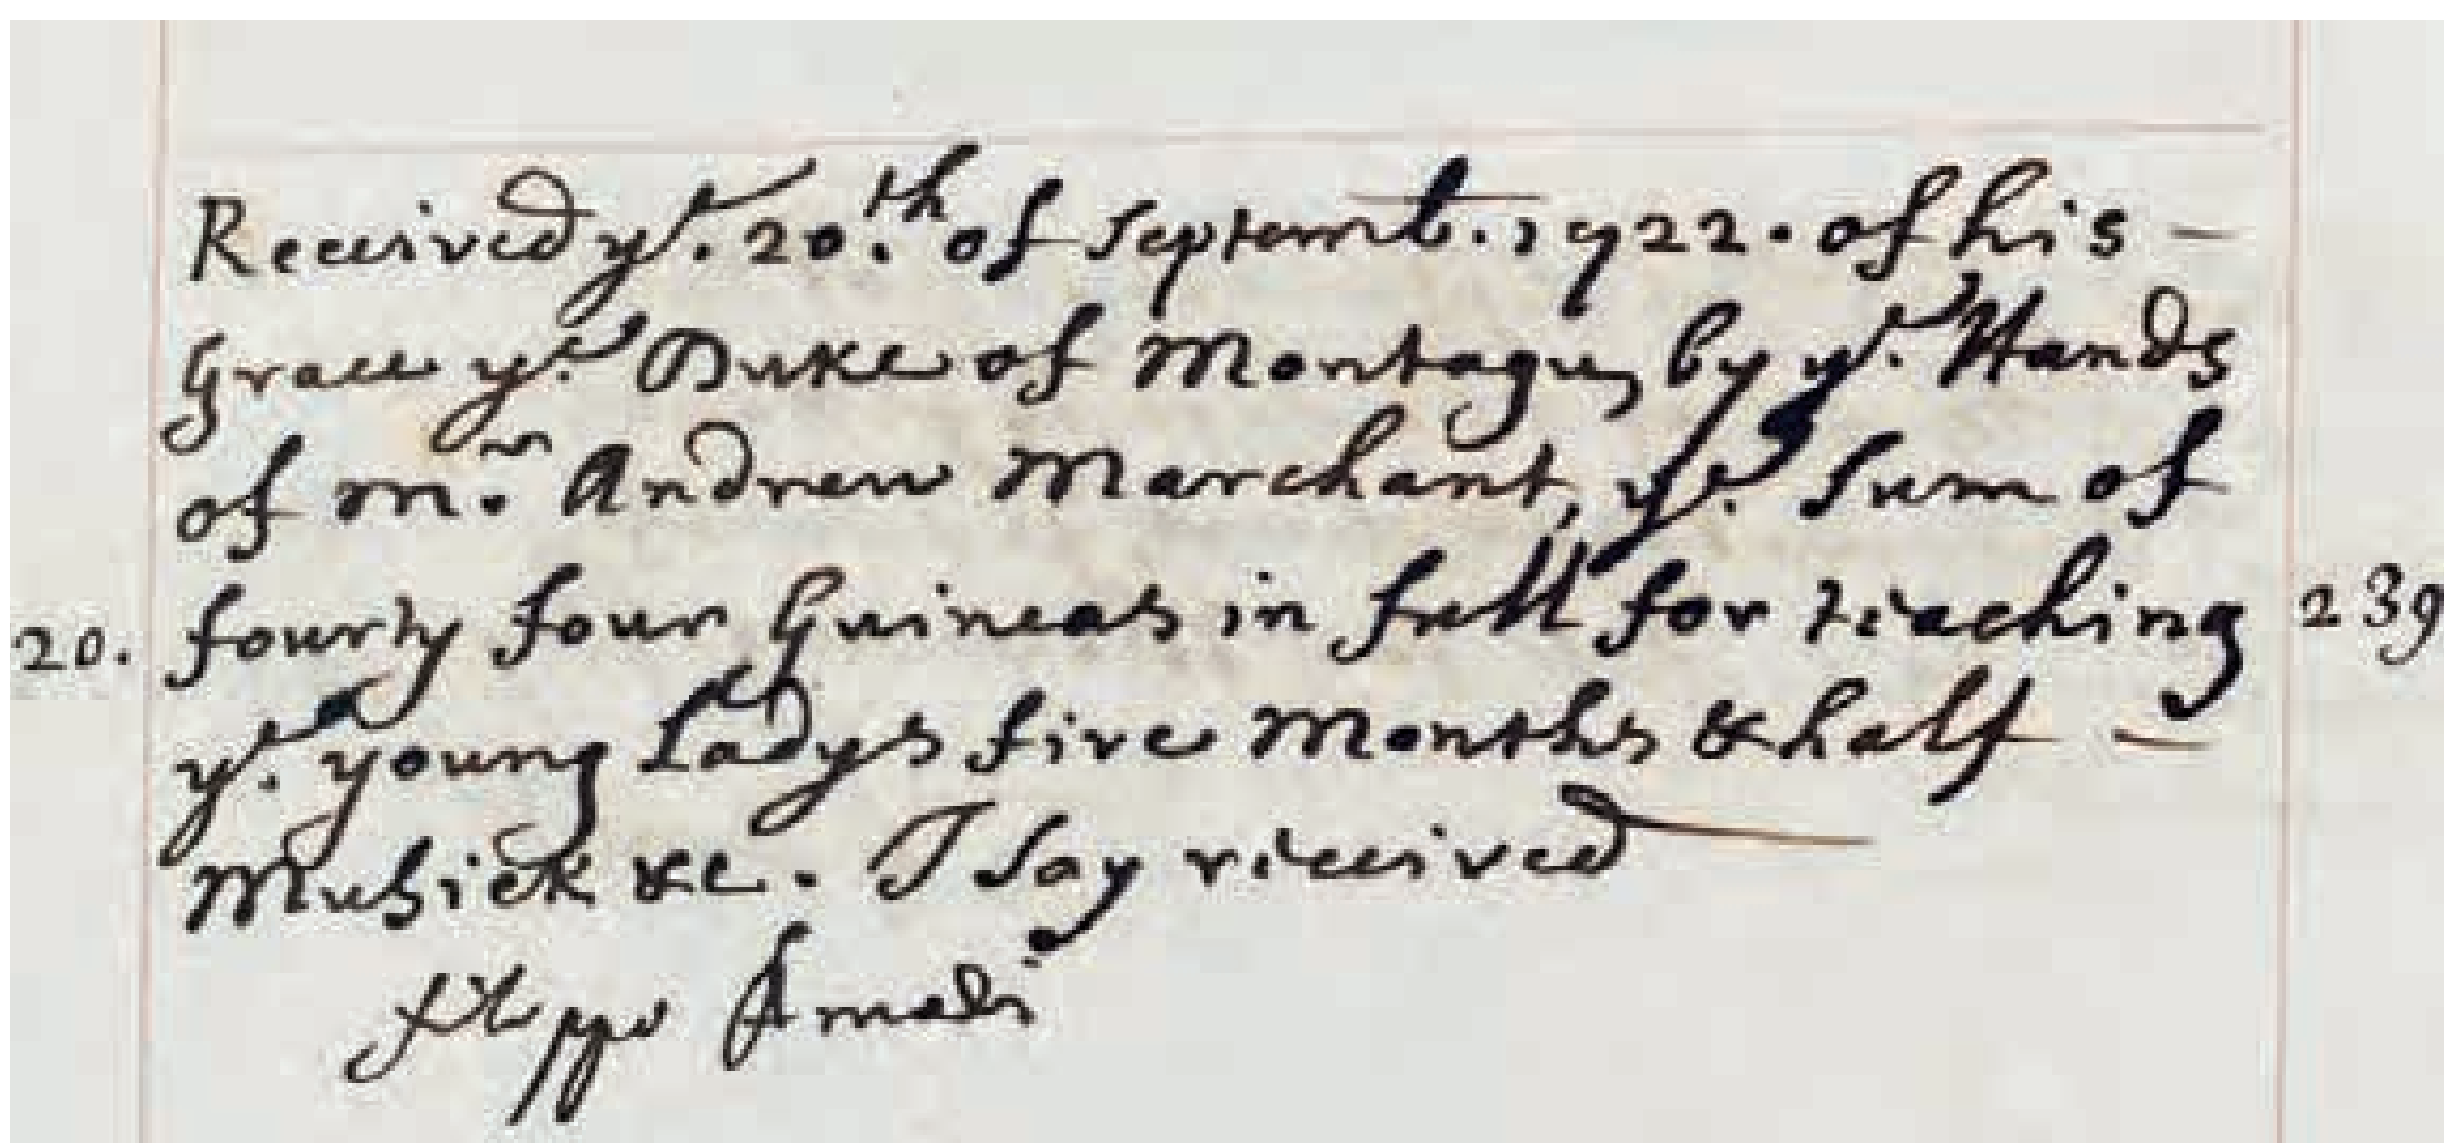 Received ye. 20.th of Septemb. 1722. of his –
Grace ye. Duke of Montagu, by ye. Hands
of Mr. Andrew Marchant, ye. Sum of
20. fourty four Guineas in full for teaching 239
ye. young Ladys five Months & half –
Musick &c. I say received
filippo Amadi